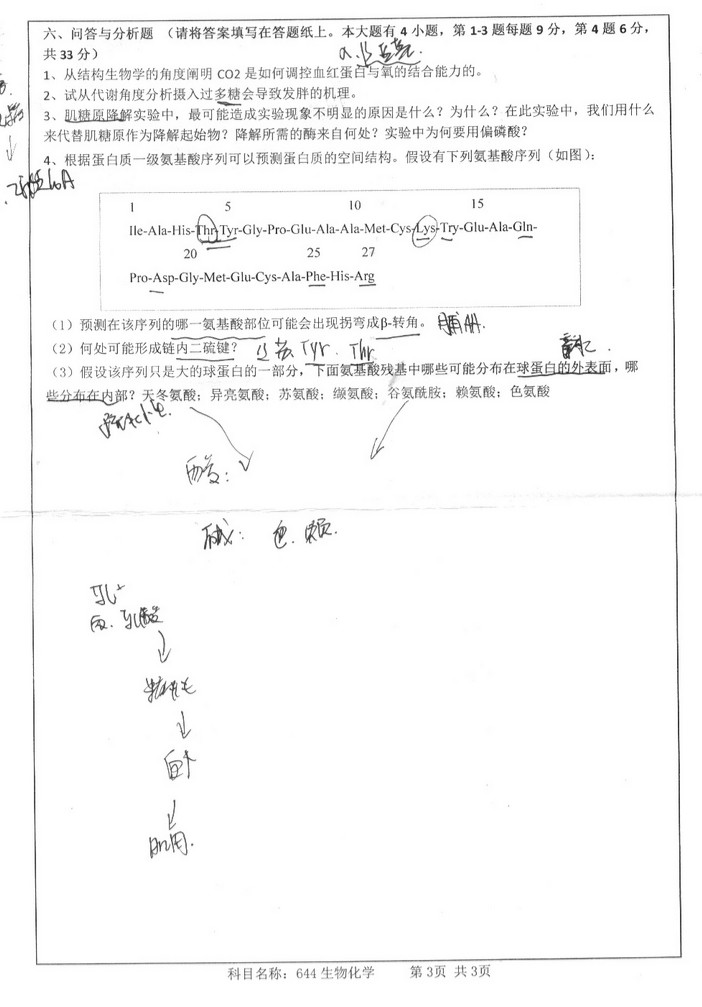 六、问答与分析题 （请将答案填写在答题纸上。本大题有 4 小题，第 1-3 题每题 9 分，第 4 题 6 分，
共 33 分）
1、从结构生物学的角度阐明 CO2 是如何调控血红蛋白与氧的结合能力的。
2、试从代谢角度分析摄入过多糖会导致发胖的机理。
3、肌糖原降解实验中，最可能造成实验现象不明显的原因是什么？为什么？在此实验中，我们用什么
来代替肌糖原作为降解起始物？降解所需的酶来自何处？实验中为何要用偏磷酸？
4、根据蛋白质一级氨基酸序列可以预测蛋白质的空间结构。假设有下列氨基酸序列（如图）：
1 5 10 15
Ile-Ala-His-Thr-Tyr-Gly-Pro-Glu-Ala-Ala-Met-Cys-Lys-Try-Glu-Ala-Gln-
20 25 27
Pro-Asp-Gly-Met-Glu-Cys-Ala-Phe-His-Arg
（1）预测在该序列的哪一氨基酸部位可能会出现拐弯成β-转角。
（2）何处可能形成链内二硫键？ Tyr. Thr
（3）假设该序列只是大的球蛋白的一部分，下面氨基酸残基中哪些可能分布在球蛋白的外表面，哪
些分布在内部？天冬氨酸；异亮氨酸；苏氨酸；缬氨酸；谷氨酰胺；赖氨酸；色氨酸
酸：
碱： 色. 赖.
乳酸
科目名称：644 生物化学 第 3页 共 3页